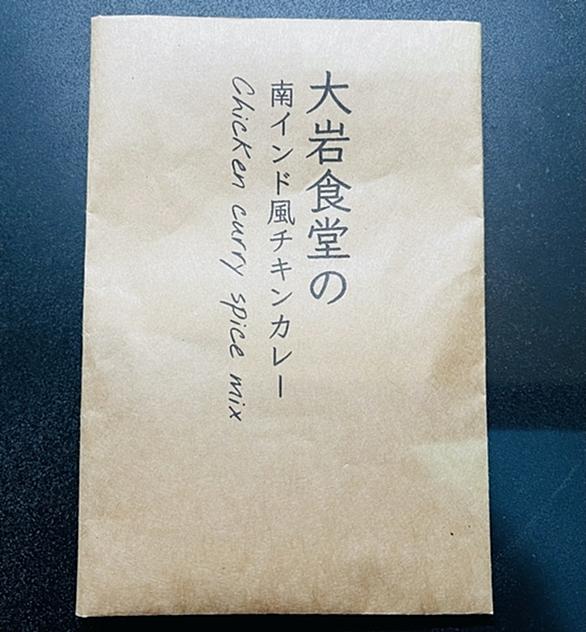 大岩食堂の
南インド風チキンカレー
Chicken curry spice mix